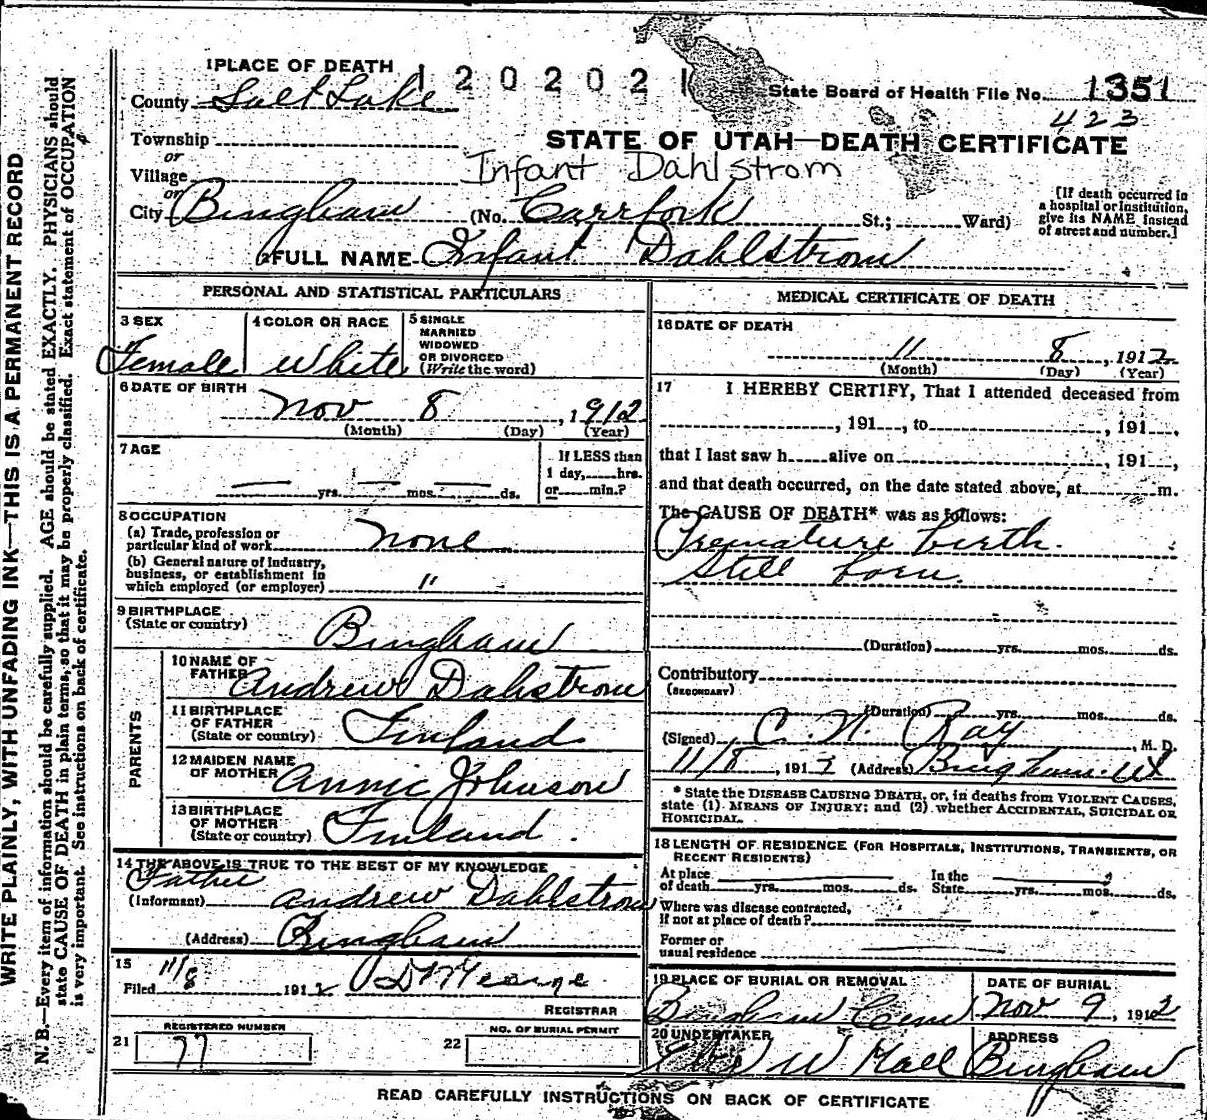 WRITE PLAINLY, WITH UNFADING INK—THIS IS A PERMANENT RECORD
N. B.—Every item of information should be carefully supplied. AGE should be stated EXACTLY. PHYSICIANS should
state CAUSE OF DEATH in plain terms, so that it may be properly classified. Exact statement of OCCUPATION
is very important. See instructions on back of certificate.
1 PLACE OF DEATH 1202021
County Salt Lake State Board of Health File No. 1351
423
Township
STATE OF UTAH—DEATH CERTIFICATE
or
Village Infant Dahlstrom
or
City Bingham (No. Carrfork St.; Ward)
[If death occurred in
a hospital or institution,
give its NAME instead
of street and number.]
2 FULL NAME Infant Dahlstrom
PERSONAL AND STATISTICAL PARTICULARS
3 SEX Female
4 COLOR OR RACE White
5 SINGLE
MARRIED
WIDOWED
OR DIVORCED
(Write the word)
6 DATE OF BIRTH
Nov 8, 1912
(Month) (Day) (Year)
7 AGE
yrs. mos. ds.
If LESS than
1 day, hrs.
or min.?
8 OCCUPATION
(a) Trade, profession or
particular kind of work None
(b) General nature of industry,
business, or establishment in
which employed (or employer) "
9 BIRTHPLACE
(State or country) Bingham
PARENTS
10 NAME OF
FATHER Andrew Dahlstrom
11 BIRTHPLACE
OF FATHER
(State or country) Finland
12 MAIDEN NAME
OF MOTHER Annie Johnson
13 BIRTHPLACE
OF MOTHER
(State or country) Finland
14 THE ABOVE IS TRUE TO THE BEST OF MY KNOWLEDGE
Father
(Informant) Andrew Dahlstrom
(Address) Bingham
15
Filed 11/8 1912
REGISTRAR
REGISTERED NUMBER
21 77
NO. OF BURIAL PERMIT
22
MEDICAL CERTIFICATE OF DEATH
16 DATE OF DEATH
11 8, 1912
(Month) (Day) (Year)
17 I HEREBY CERTIFY, That I attended deceased from
, 191 , to , 191 ,
that I last saw h alive on , 191 ,
and that death occurred, on the date stated above, at m.
The CAUSE OF DEATH* was as follows:
Premature birth.
Still born.
(Duration) yrs. mos. ds.
Contributory
(SECONDARY)
(Duration) yrs. mos. ds.
(Signed) C. N. Ray, M. D.
11/8, 1912 (Address) Bingham Ut
* State the DISEASE CAUSING DEATH, or, in deaths from VIOLENT CAUSES,
state (1) MEANS OF INJURY; and (2) whether ACCIDENTAL, SUICIDAL OR
HOMICIDAL.
18 LENGTH OF RESIDENCE (FOR HOSPITALS, INSTITUTIONS, TRANSIENTS, OR
RECENT RESIDENTS)
At place
of death yrs. mos. ds.
In the
State yrs. mos. ds.
Where was disease contracted,
if not at place of death?
Former or
usual residence
19 PLACE OF BURIAL OR REMOVAL
Bingham Cem
DATE OF BURIAL
Nov 9, 1912
20 UNDERTAKER
W Hall
ADDRESS
Bingham
READ CAREFULLY INSTRUCTIONS ON BACK OF CERTIFICATE